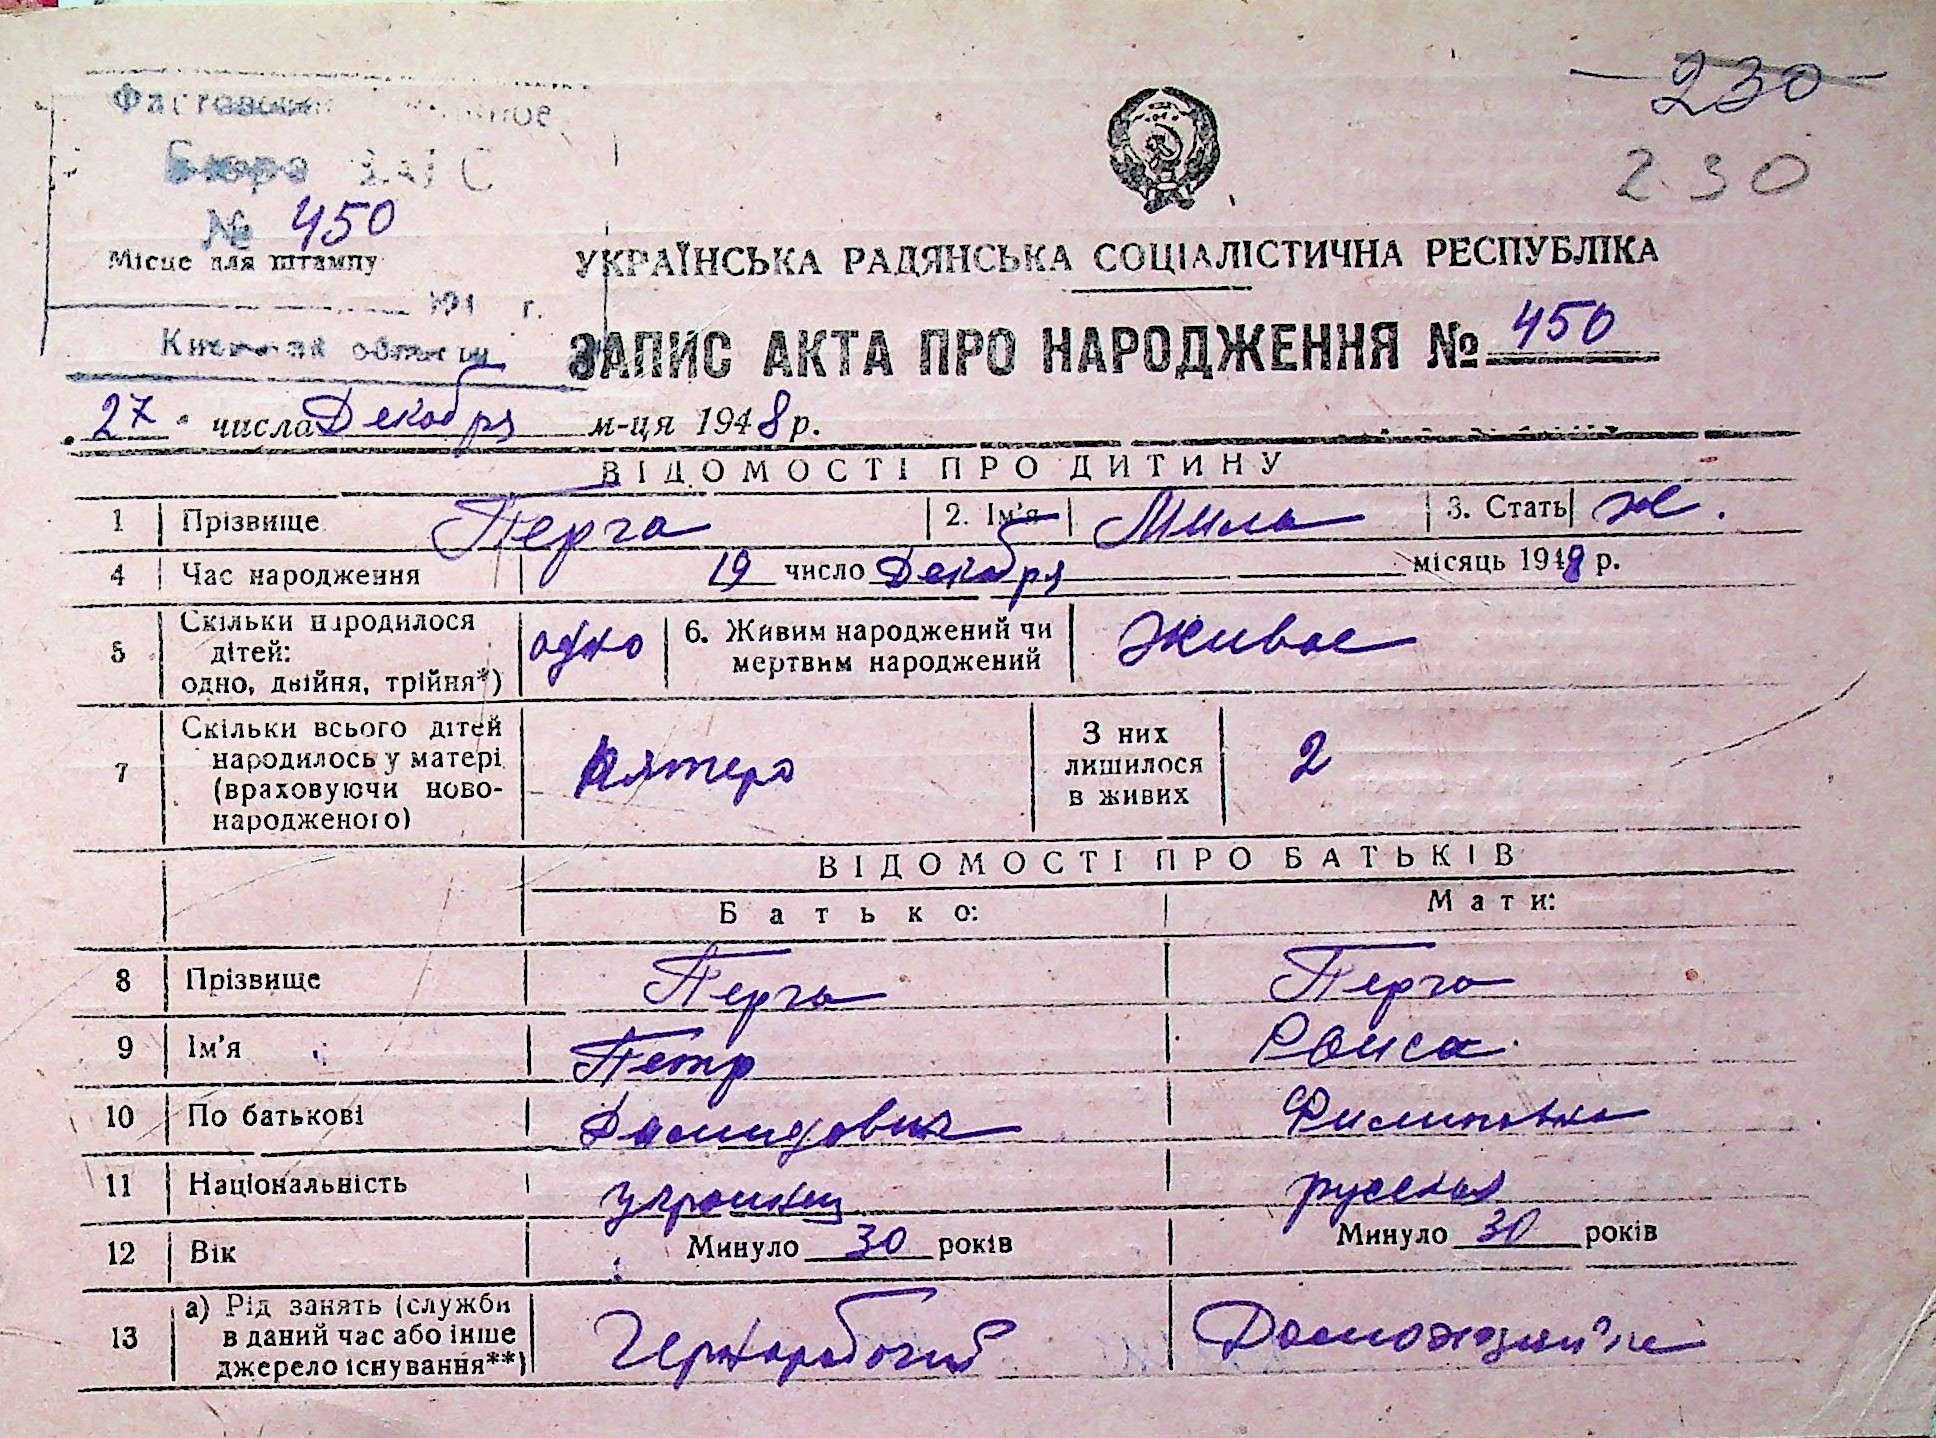 230
230
Бюро ЗАГС
№ 450
Місце для штампу
194 г.
УКРАЇНСЬКА РАДЯНСЬКА СОЦІАЛІСТИЧНА РЕСПУБЛІКА
ЗАПИС АКТА ПРО НАРОДЖЕННЯ № 450
27 числа Декабря м-ця 1948 р.
ВІДОМОСТІ ПРО ДИТИНУ
1 Прізвище Перга 2. Ім'я Мила 3. Стать ж.
4 Час народження 19 число Декабря місяць 1948 р.
5 Скільки народилося
дітей:
одно, двійня, трійня*) одно 6. Живим народжений чи
мертвим народжений живое
7 Скільки всього дітей
народилось у матері
(враховуючи ново-
народженого) пятеро З них
лишилося
в живих 2
ВІДОМОСТІ ПРО БАТЬКІВ
Батько: Мати:
8 Прізвище Перга Перга
9 Ім'я Петр Раиса
10 По батькові Филиповна
11 Національність украинец русская
12 Вік Минуло 30 років Минуло 30 років
13 а) Рід занять (служби
в даний час або інше
джерело існування**) Чернорабочий